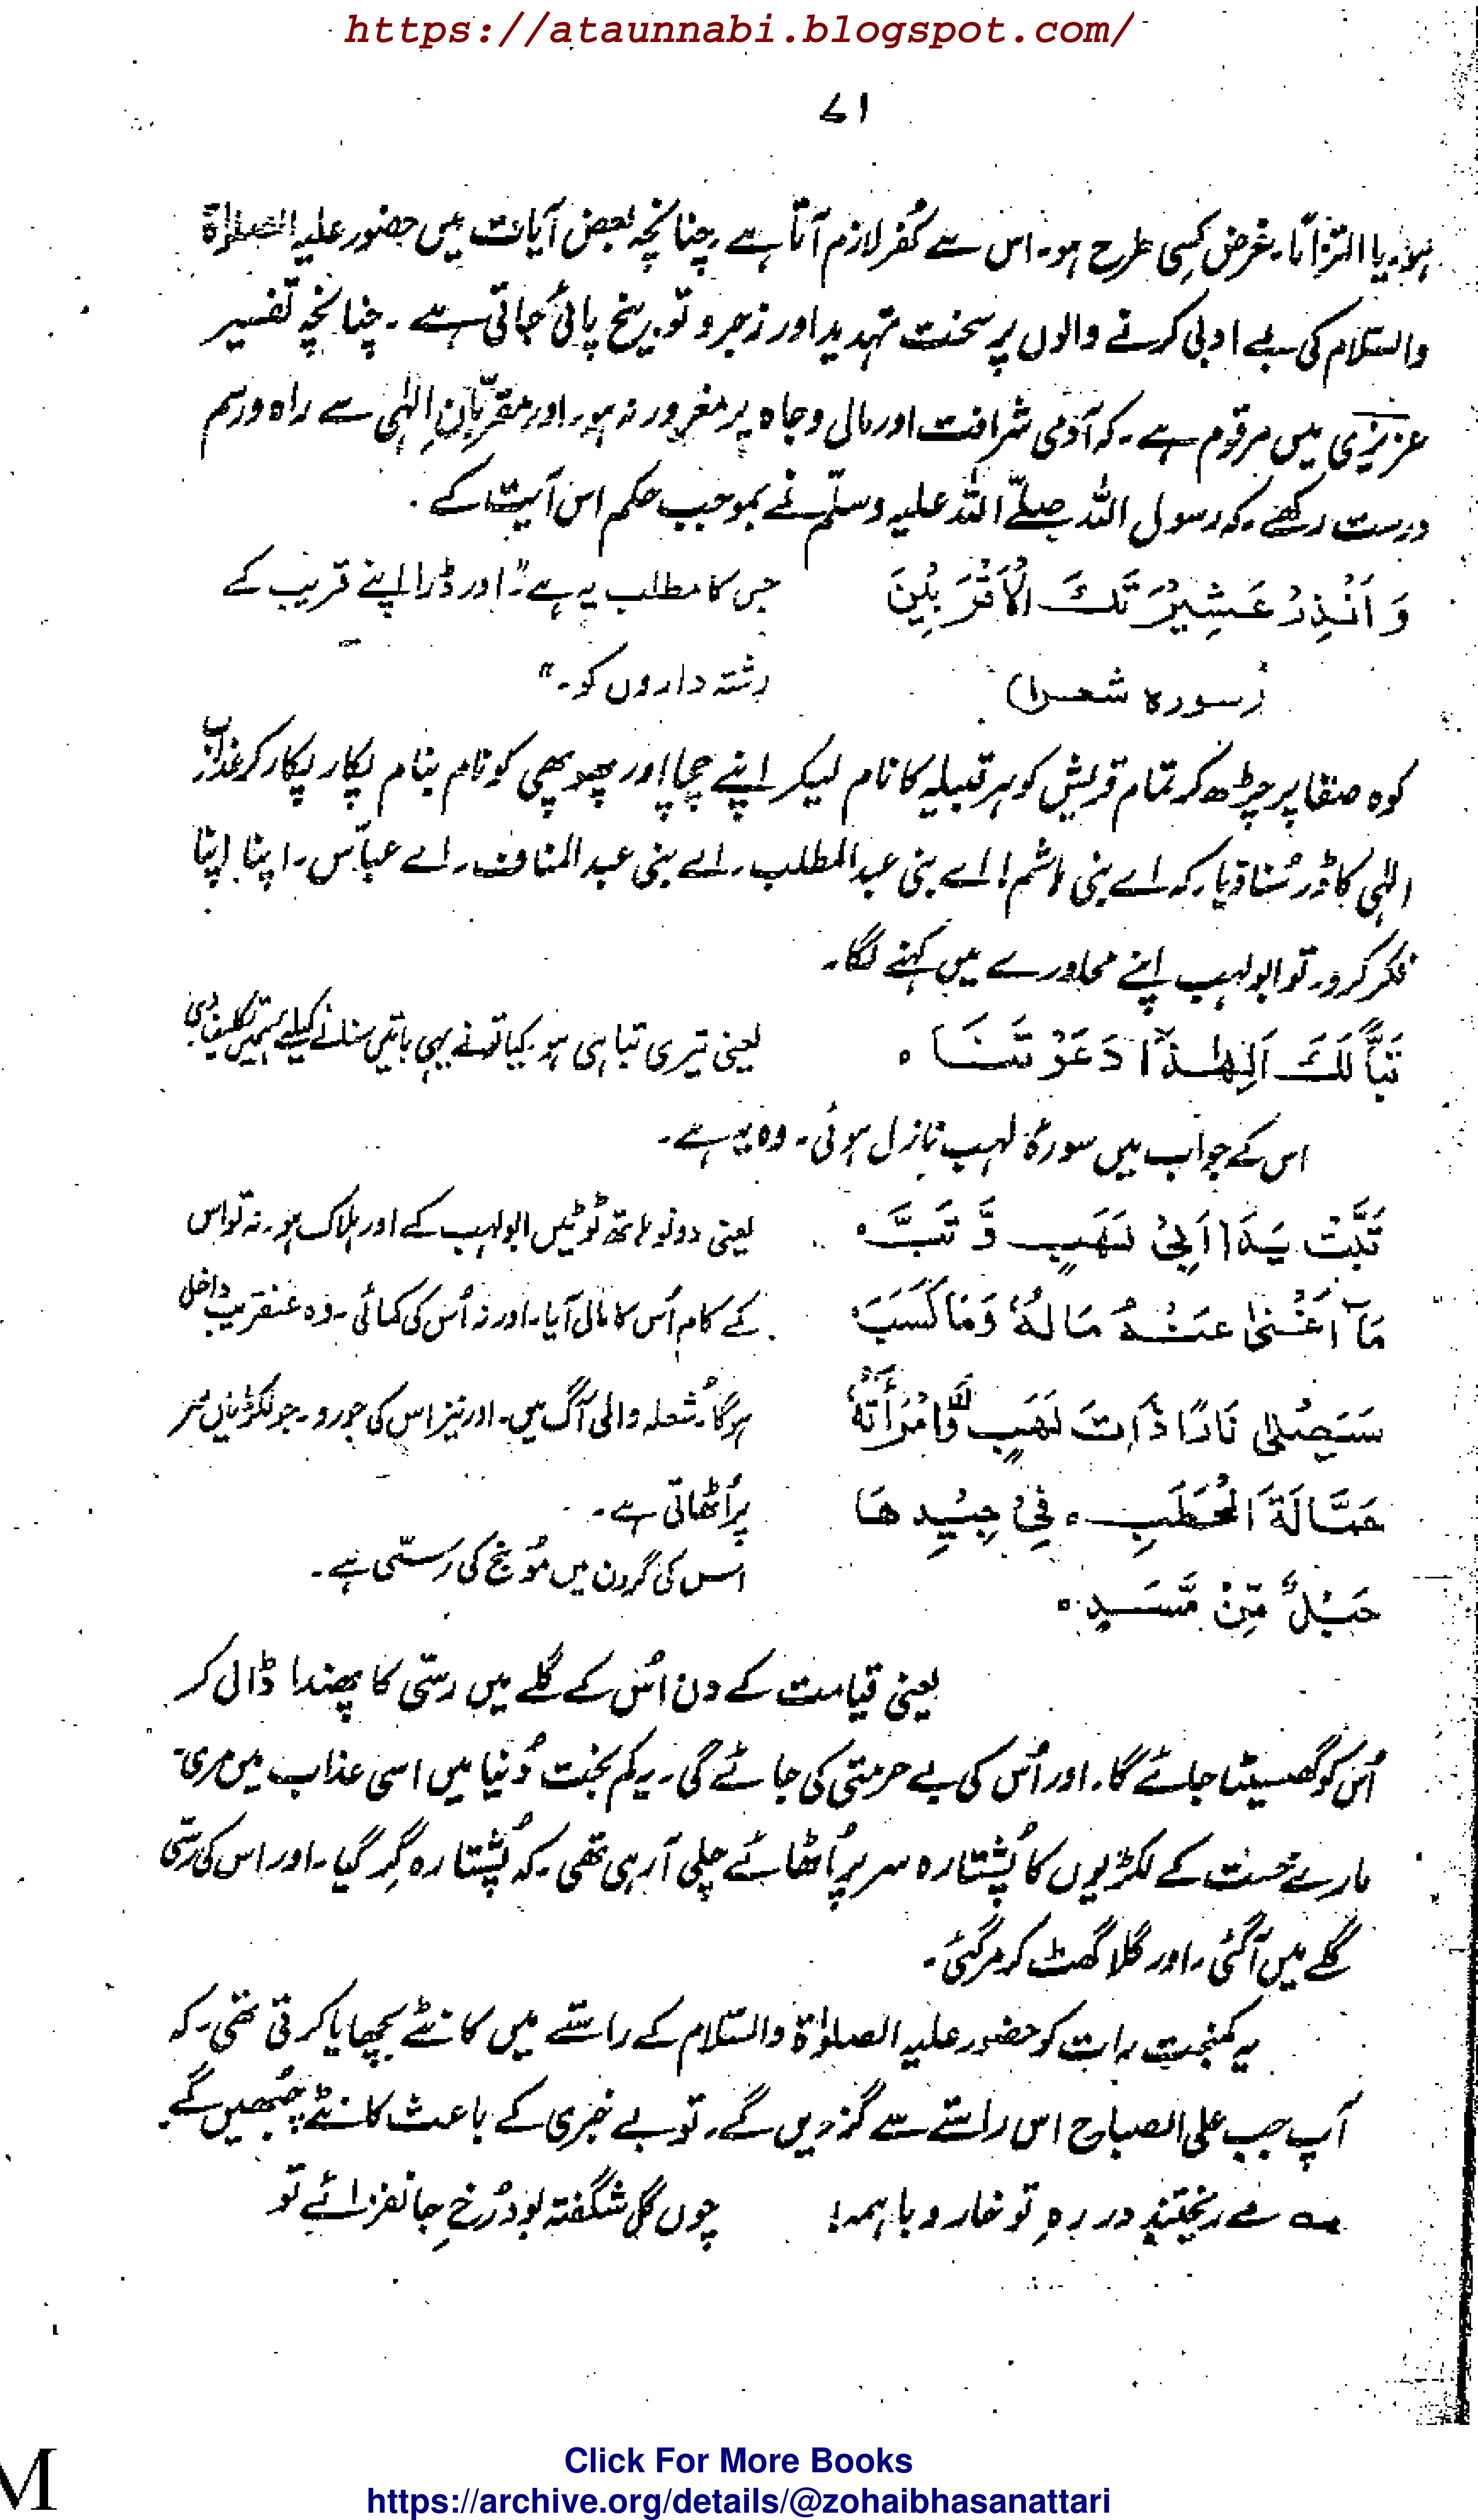 https://ataunnabi.blogspot.com/
۷۱
ہو۔ یا التزاماً۔ غرض کسی طرح ہو۔ اس سے کُفر لازم آتا ہے۔ چنانچہ بعض آیات میں حضور علیہ الصلوٰۃ
والسّلام کی بے ادبی کرنے والوں پر سخت تہدید اور زجر و توبیخ پائی جاتی ہے۔ چنانچہ تفسیر
عزیزی میں مرقوم ہے۔ کہ آدمی شرافت اور مال و جاہ پر مغرور نہ ہو۔ اور مقرّبانِ الٰہی سے راہ و رسم
درست رکھے۔ کہ رسول اللہ صلّے اللہ علیہ وسلّم نے بموجب حکم اس آیت کے۔
وَاَنْذِرْ عَشِیْرَتَكَ الْاَقْرَبِیْنَ جس کا مطلب یہ ہے "اور ڈرا اپنے قریب کے
(سورہ شعرا) رشتہ داروں کو۔"
کوہ صفا پر چڑھ کر تمام قریش کو ہر قبیلہ کا نام لیکر اپنے چچا اور پھوپھی کو نام بنام پکار پکار کر عذاب
الٰہی کا ڈر سُنا دیا۔ کہ اے بنی ہاشم! اے بنی عبدالمطلب۔ اے بنی عبدالمناف۔ اے عبّاس۔ اپنا اپنا
فکر کرو۔ تو ابولہب اپنے محاورے میں کہنے لگا۔
تَبًّا لَكَ اَلِهٰذَا دَعَوْتَنَا ہ یعنی تیری تباہی ہو۔ کیا تونے یہی باتیں سنانے کیلئے ہمیں تکلیف دی
اس کے جواب میں سورۂ لہب نازل ہوئی۔ وہ یہ ہے۔
تَبَّتْ یَدَا اَبِیْ لَهَبٍ وَّ تَبَّ ہ یعنی دونو ہاتھ ٹوٹیں ابولہب کے اور ہلاک ہو۔ نہ تو اس
مَآ اَغْنٰى عَنْهُ مَالُهٗ وَمَا كَسَبَ کے کام اُس کا مال آیا۔ اور نہ اُس کی کمائی۔ وہ عنقریب داخل
سَیَصْلٰى نَارًا ذَاتَ لَهَبٍ وَّامْرَأَتُهٗ ہوگا۔ شُعلہ والی آگ میں۔ اور نیز اس کی جورو۔ جو لکڑیاں سر
حَمَّالَةَ الْحَطَبِ ہ فِیْ جِیْدِهَا پر اُٹھاتی ہے۔
حَبْلٌ مِّنْ مَّسَدٍ ہ اس کی گردن میں مُونج کی رسّی ہے۔
یعنی قیامت کے دن اُس کے گلے میں رسّی کا پھندا ڈال کر
اُس کو گھسیٹا جائے گا۔ اور اُس کی بے حرمتی کی جائے گی۔ یہ کم بخت دُنیا میں اسی عذاب میں مری۔
مارے خست کے لکڑیوں کا پُشتارہ سر پر اُٹھائے چلی آرہی تھی۔ کہ پُشتارہ گِر گیا۔ اور اس کی رسّی
گلے میں آگئی۔ اور گلا گھٹ کر مرگئی۔
یہ کمبخت رات کو حضور علیہ الصلوٰۃ والسّلام کے راستے میں کانٹے بچھایا کرتی تھی۔ کہ
آپ جب علی الصباح اس راستے سے گزریں گے۔ تو بے خبری کے باعث کانٹے چُبھیں گے۔
؎ مے ریختند در رہِ تو خار و باہمہ! چوں گل شگفتہ بود رُخِ جانفزائے تو
M
Click For More Books
https://archive.org/details/@zohaibhasanattari